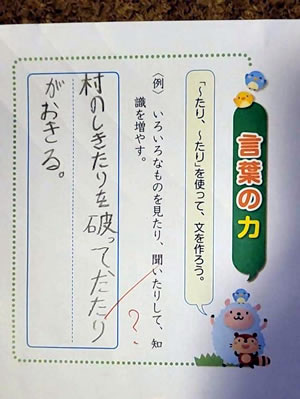 言葉の力
「～たり、～たり」を使って、文を作ろう。
〈例〉 いろいろなものを見たり、聞いたりして、知
識を増やす。
村のしきたりを破って、たたり
がおきる。
?